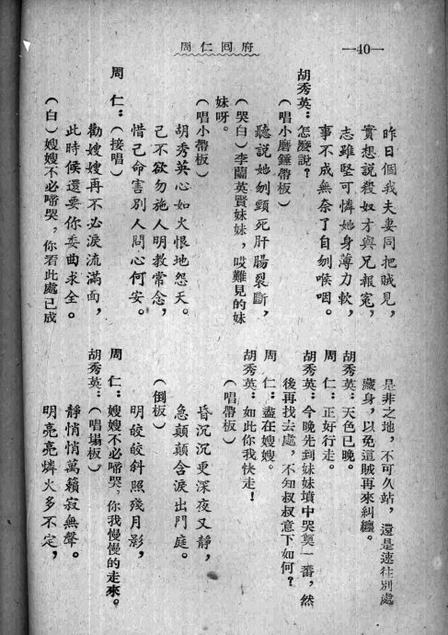 周仁回府
—40—
昨日個我夫妻同把賊見，
實想說殺奴才與兄報冤，
志雖堅可憐她身薄力軟，
事不成無奈了自刎喉咽。
胡秀英：怎麼說？
（唱小磨錘帶板）
聽說她刎頸死肝腸裂斷，
（哭白）李蘭英賢妹妹，哎難見的妹
妹呀。
（唱小帶板）
胡秀英心如火恨地怨天。
己不欲勿施人明教常念，
惜己命害別人問心何安。
周　仁：（接唱）
勸嫂嫂再不必淚流滿面，
此時候還要你委曲求全。
（白）嫂嫂不必啼哭，你看此處已成
是非之地，不可久站，還是速往別處
藏身，以免這賊再來糾纏。
胡秀英：天色已晚。
周　仁：正好行走。
胡秀英：今晚先到妹妹墳中哭奠一番，然
後再找去處，不知叔叔意下如何？
周　仁：盡在嫂嫂。
胡秀英：如此你我快走！
（唱帶板）
昏沉沉更深夜又靜，
急顛顛含淚出門庭。
（倒板）
明皎皎斜照殘月影，
周　仁：嫂嫂不必啼哭，你我慢慢的走來。
胡秀英：（唱塌板）
靜悄悄萬籟寂無聲。
明亮亮燐火多不定，